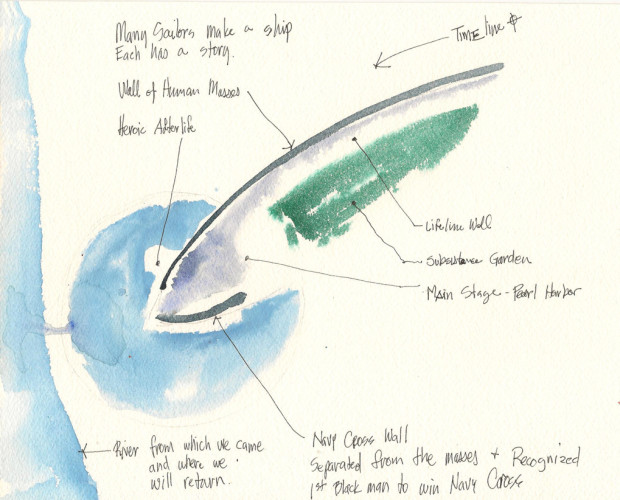 Many Sailors make a ship
Each has a story.
TimeLine
Wall of Human Masses
Heroic Afterlife
Lifeline Wall
Subsistance Garden
Main Stage - Pearl Harbor
River from which we came
and where we
will return.
Navy Cross Wall
Separated from the masses + Recognized
1st Black man to win Navy Cross